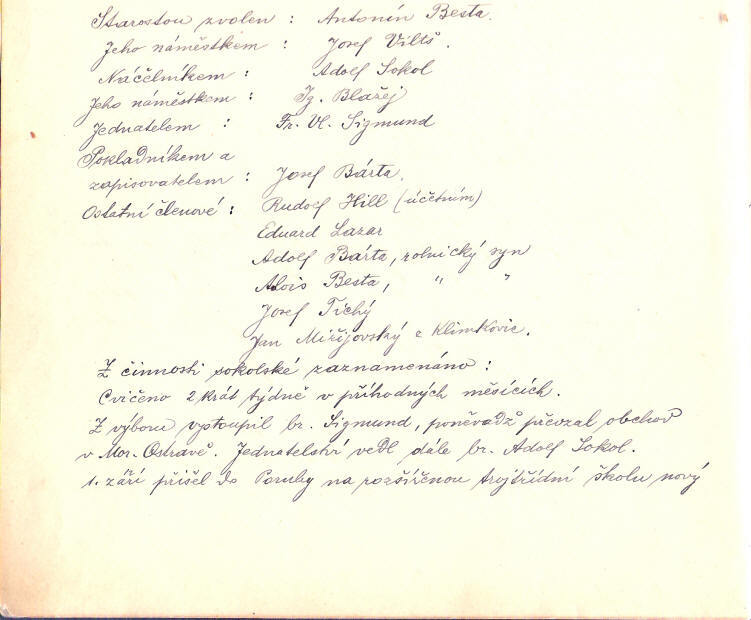 Starostou zvolen : Antonín Besta.
Jeho náměstkem : Josef Viltš.
Náčelníkem : Adolf Sokol
Jeho náměstkem : Ig. Blažej
Jednatelem : Fr. Vl. Sigmund
Pokladníkem a
zapisovatelem : Josef Bárta.
Ostatní členové : Rudolf Hill (účetním)
Eduard Lazar
Adolf Bárta, rolnický syn
Alois Besta, " "
Josef Tichý
Jan Miřijovský z Klimkovic.
Z činnosti sokolské zaznamenáno :
Cvičeno 2 krát týdně v příhodných měsících.
Z výboru vystoupil br. Sigmund, poněvadž převzal obchod
v Mor. Ostravě. Jednatelství vedl dále br. Adolf Sokol.
1. září přišel do Poruby na rozšířenou trojtřídní školu nový